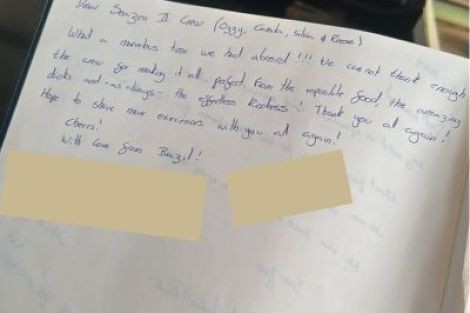 Dear Senzen II Crew (Oggy, &
What a marvelous time we had abroad!!! We can not thank enough
the crew for making it all perfect from the impecable food, the amazing
drinks and -as always- the effortless kindness! Thank you all again!
Hope to share more experiences with you all again!
Cheers!
With love from Brazil!